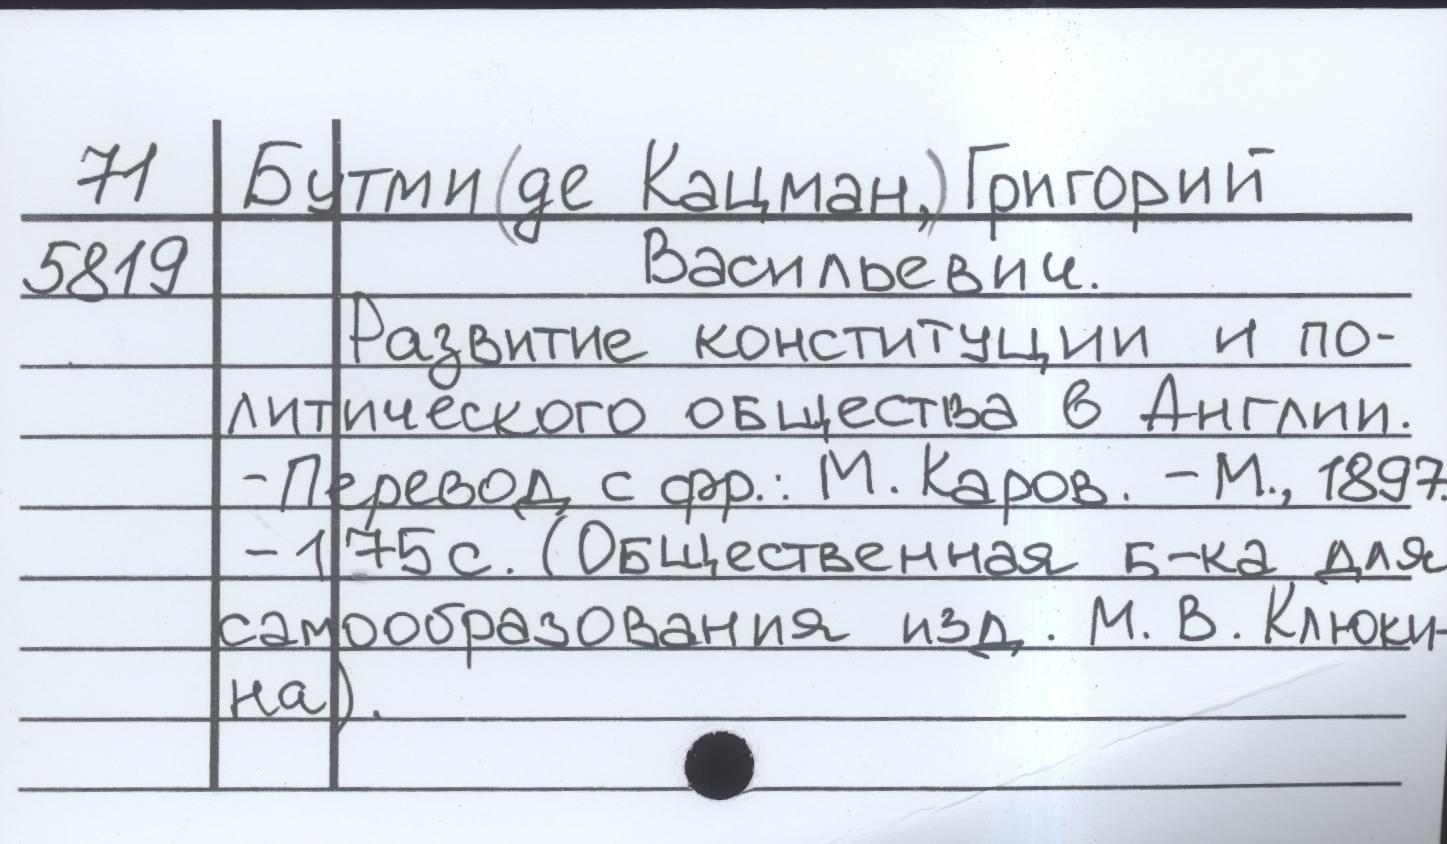 71 Бутми (де Кацман,) Григорий
5819 Васильевич.
Развитие конституции и по-
литического общества в Англии.
- Перевод с фр.: М. Каров. - М., 1897.
- 175 с. (Общественная б-ка для
самообразования изд. М. В. Клюки-
на).